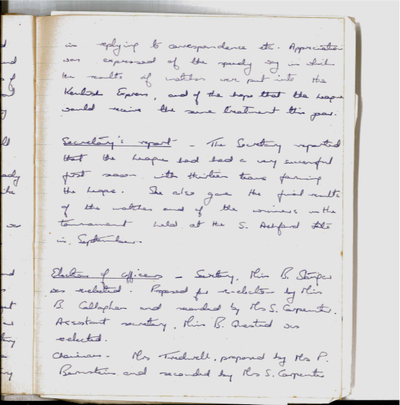 in replying to correspondence etc. Appreciation
was expressed of the speedy way in which
the results of matches were put into the
Kentish Express, and of the hope that the League
would receive the same treatment this year.
Secretary's report - The Secretary reported
that the League had had a very successful
first season with thirteen teams forming
the League. She also gave the final results
of the matches and of the winners in the
tournament held at the S. Ashford
in September.
Election of officers - Secretary, Miss B.
was reelected. Proposed for reelection by Miss
B. Callaghan and seconded by Mrs S. Carpenter.
Assistant secretary, Miss B. was
reelected.
Chairman - Mrs Tindwell, proposed by Mrs P.
and seconded by Mrs S. Carpenter